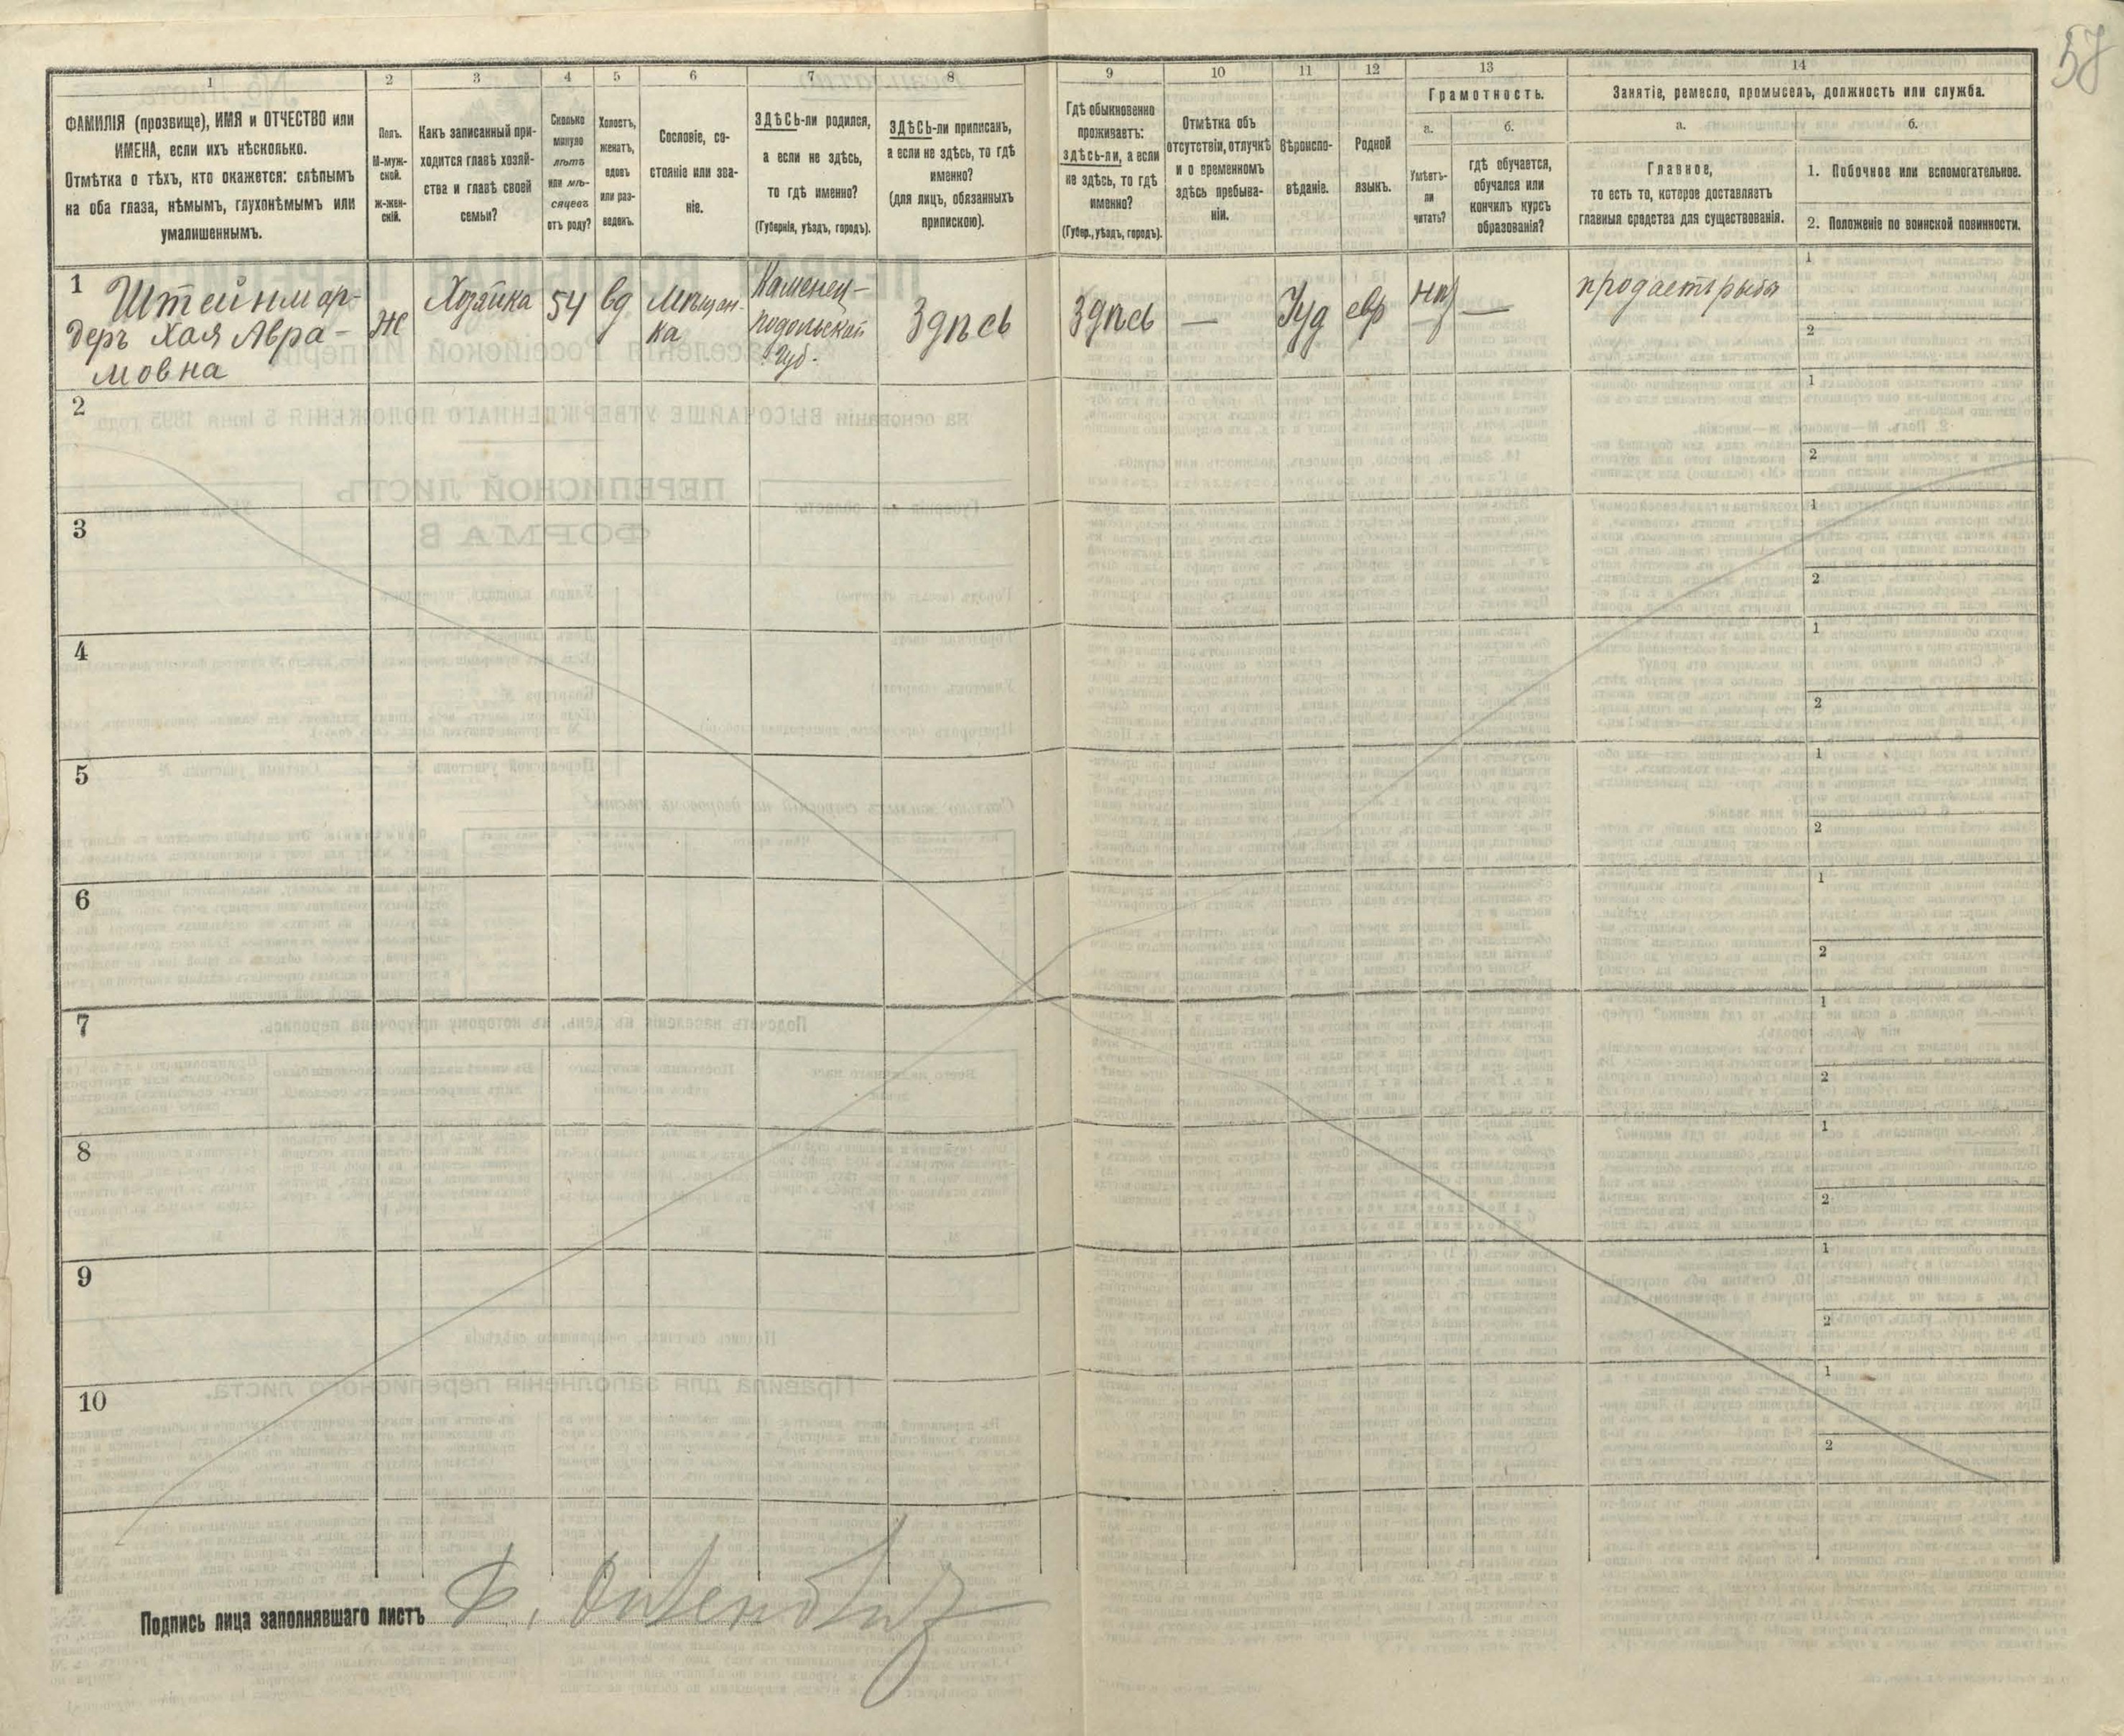 58
1
2
3
4
5
6
7
8
9
10
11
12
13
14
ФАМИЛІЯ (прозвище), ИМЯ и ОТЧЕСТВО или
ИМЕНА, если ихъ нѣсколько.
Отмѣтка о тѣхъ, кто окажется: слѣпымъ
на оба глаза, нѣмымъ, глухонѣмымъ или
умалишеннымъ.
Полъ.
М-муж-
ской.
ж-жен-
скій.
Какъ записанный при-
ходится главѣ хозяй-
ства и главѣ своей
семьи?
Сколько
минуло
лѣтъ
или мѣ-
сяцевъ
отъ роду?
Холостъ,
женатъ,
вдовъ
или раз-
веденъ.
Сословіе, со-
стояніе или зва-
ніе.
ЗДѢСЬ-ли родился,
а если не здѣсь,
то гдѣ именно?
(Губернія, уѣздъ, городъ).
ЗДѢСЬ-ли приписанъ,
а если не здѣсь, то гдѣ
именно?
(для лицъ, обязанныхъ
припискою).
Гдѣ обыкновенно
проживаетъ:
здѣсь-ли, а если
не здѣсь, то гдѣ
именно?
(Губер., уѣздъ, городъ).
Отмѣтка объ
отсутствіи, отлучкѣ
и о временномъ
здѣсь пребыва-
ніи.
Вѣроиспо-
вѣданіе.
Родной
языкъ.
Грамотность.
а.
Умѣетъ-
ли
читать?
б.
гдѣ обучается,
обучался или
кончилъ курсъ
образованія?
Занятіе, ремесло, промыселъ, должность или служба.
а.
Главное,
то есть то, которое доставляетъ
главныя средства для существованія.
б.
1. Побочное или вспомогательное.
2. Положеніе по воинской повинности.
1
Штейнмар-
деръ Хая Авра-
мовна
Ж
Хозяйка
54
вд
Мѣщан-
ка
Каменец-
подольской
Губ.
Здѣсь
Здѣсь
—
Іуд
евр
нѣ
—
продаетъ рыбу
1
2
2
1
2
3
1
2
4
1
2
5
1
2
6
1
2
7
1
2
8
1
2
9
1
2
10
1
2
Подпись лица заполнявшаго листъ